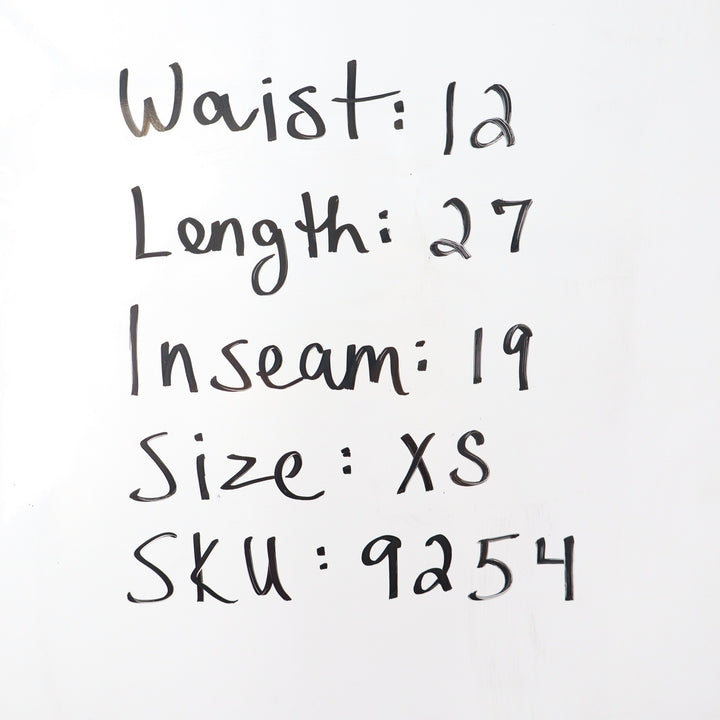 Waist: 12
Length: 27
Inseam: 19
Size: XS
SKU: 9254